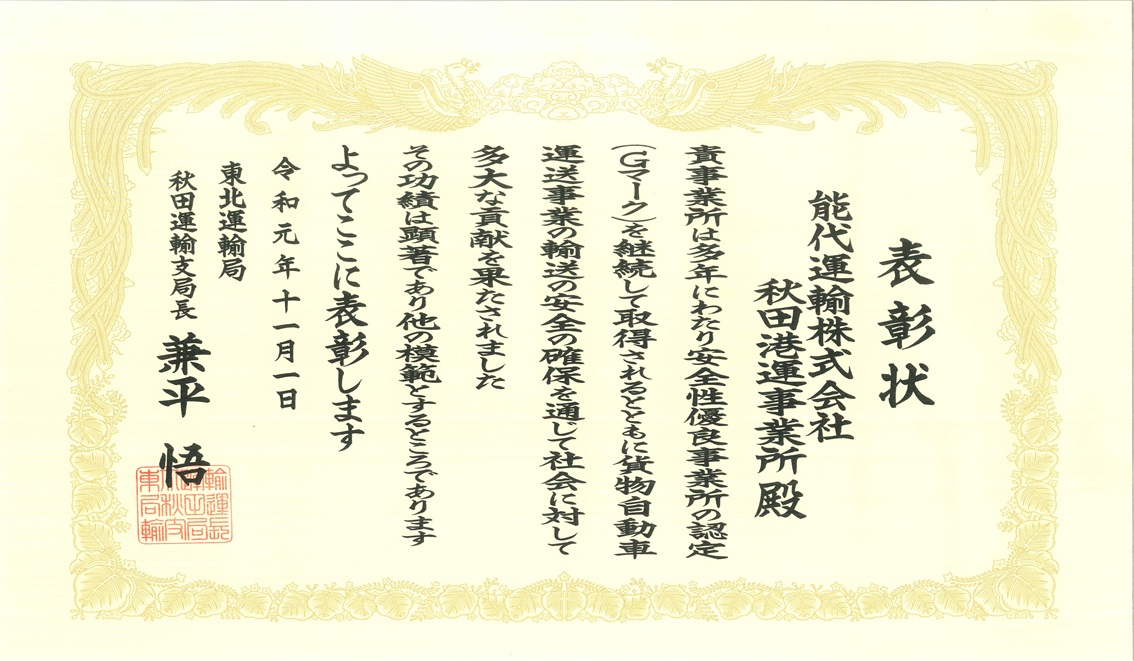 表彰状
能代運輸株式会社
秋田港運事業所殿
貴事業所は多年にわたり安全性優良事業所の認定
(Gマーク)を継続して取得されるとともに貨物自動車
運送事業の輸送の安全の確保を通じて社会に対して
多大な貢献を果たされました
その功績は顕著であり他の模範とするところであります
よってここに表彰します
令和元年十一月一日
東北運輸局
秋田運輸支局長 兼平 悟